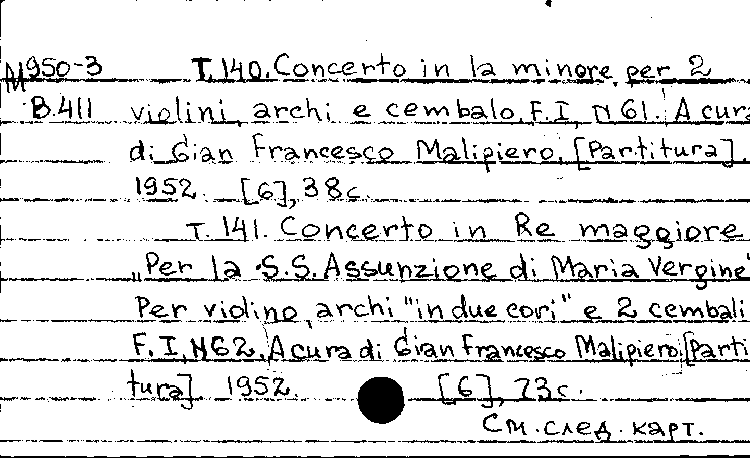 М950-3 T.140. Concerto in la minore per 2
B.411 violini, archi e cembalo, F.I, N61. A cura
di Gian Francesco Malipiero. [Partitura].
1952. [6], 38с.
T. 141. Concerto in Re maggiore
„Per la S.S. Assunzione di Maria Vergine"
Per violino, archi "in due cori" e 2 cembali
F.I, N62. A cura di Gian Francesco Malipiero. [Parti
tura]. 1952. [6], 73с.
См. след. карт.